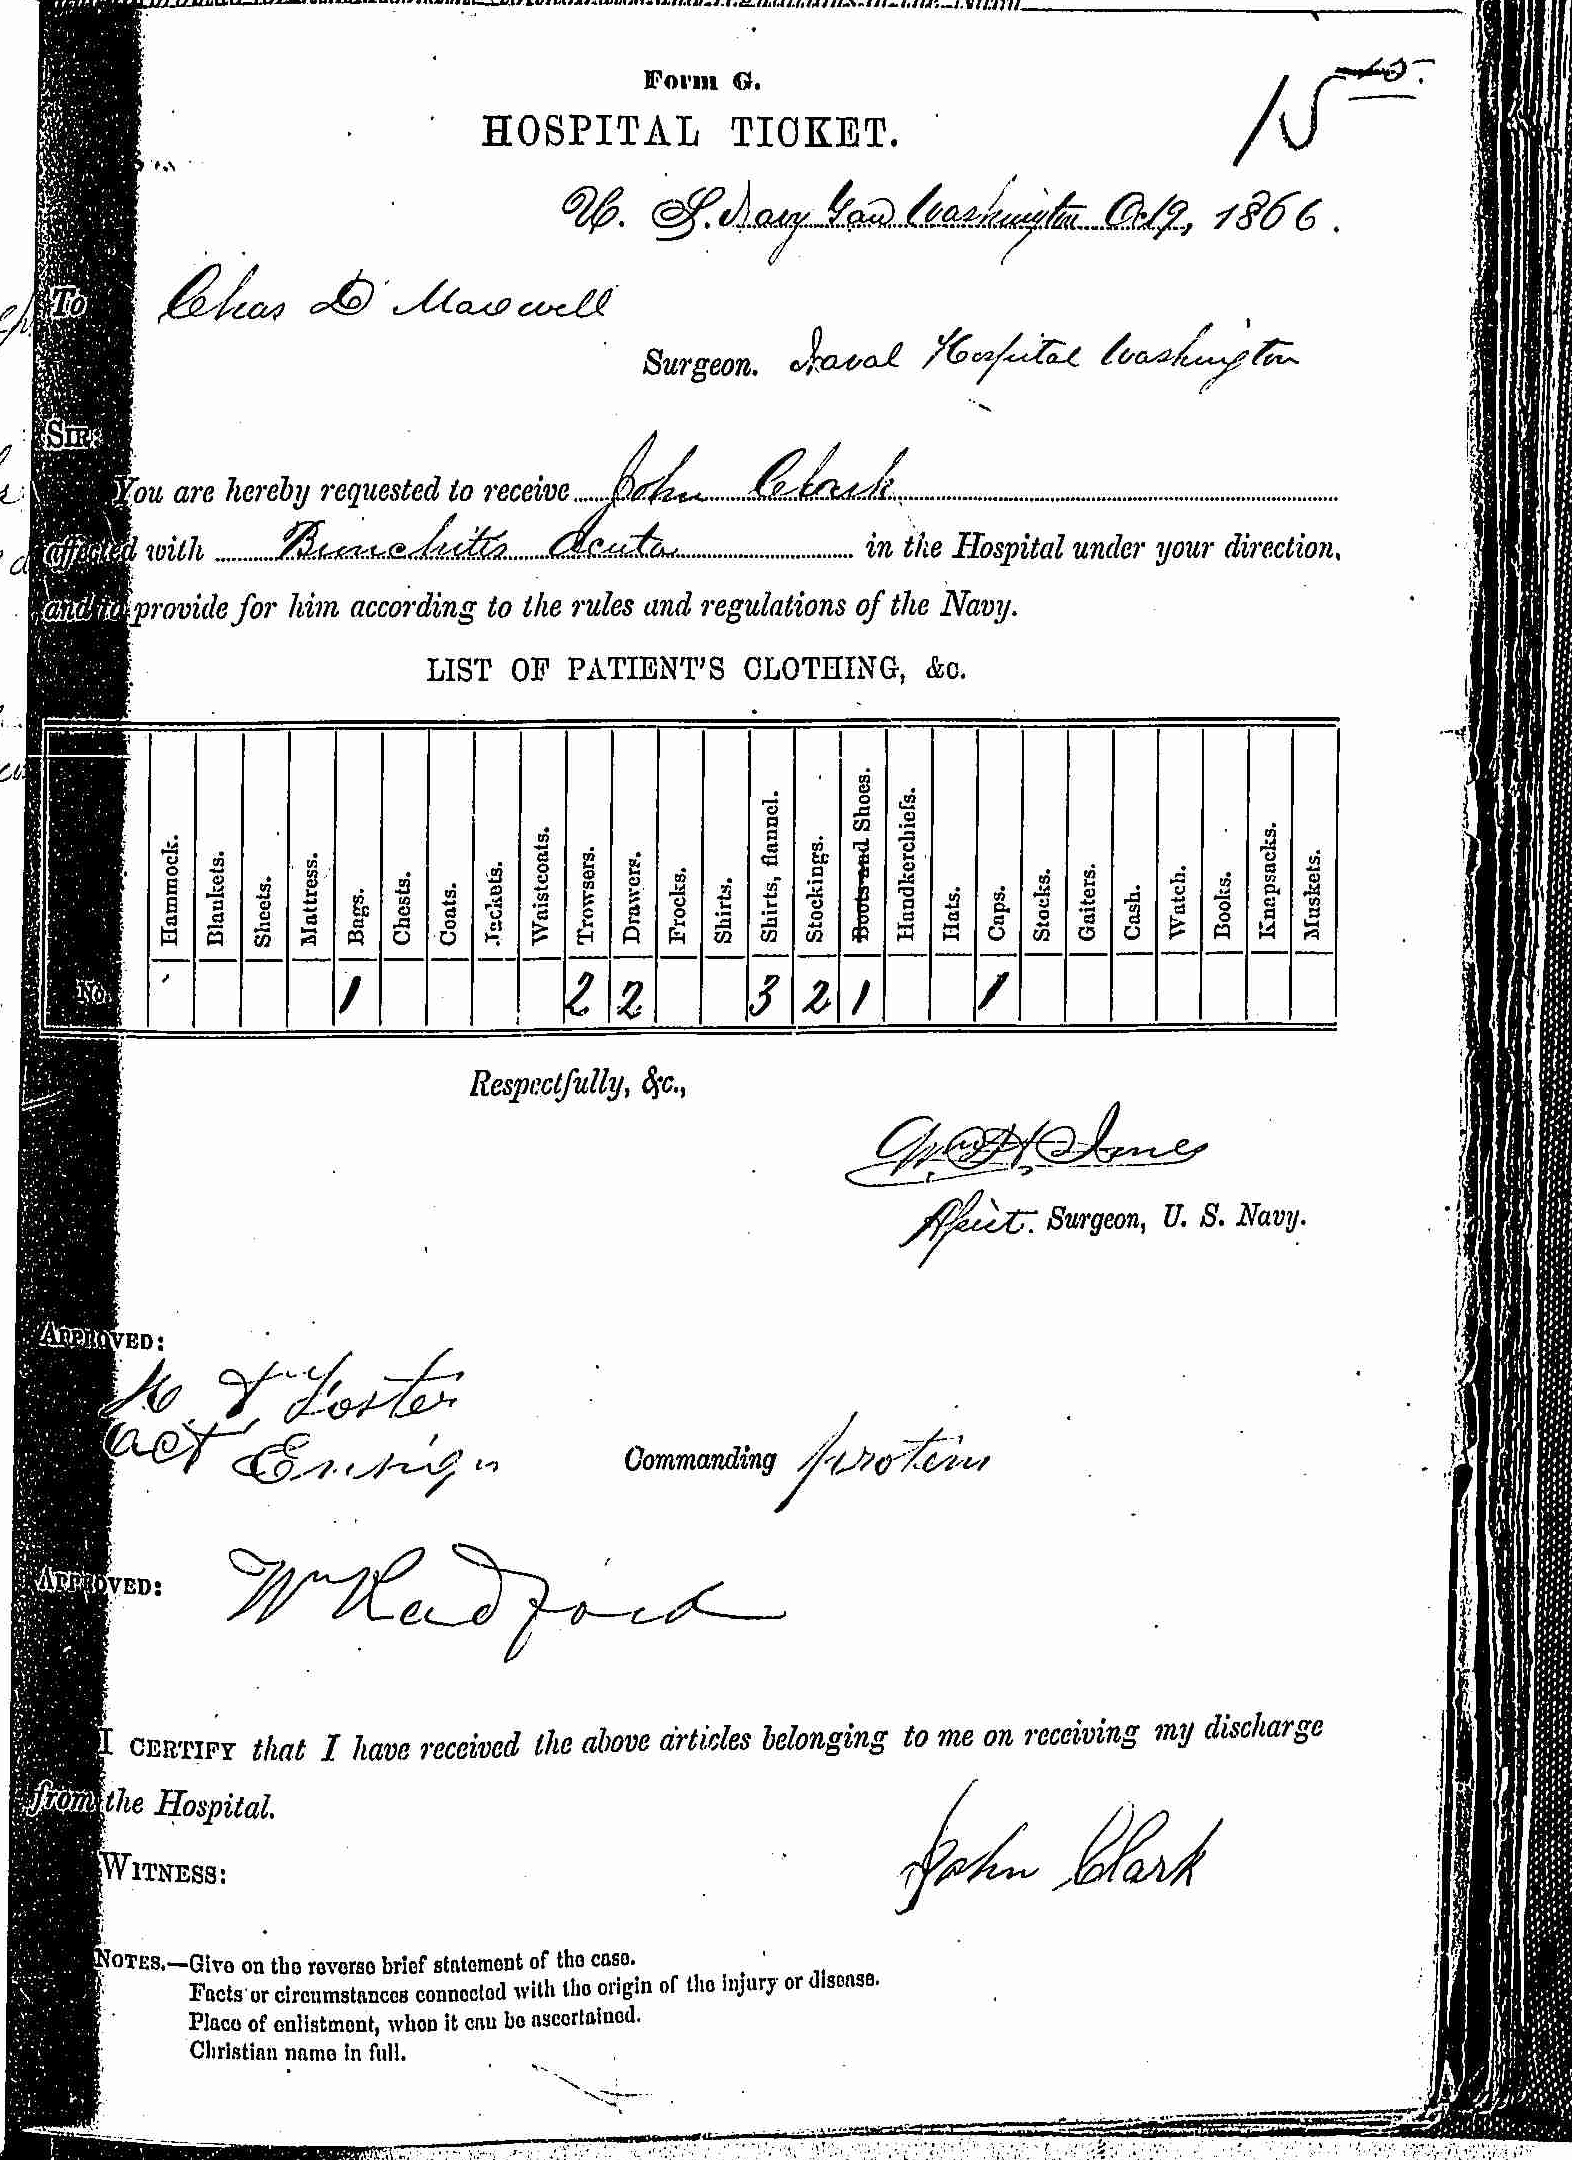 Form G.
HOSPITAL TICKET.
15
U. S. Navy Yard Washington Oct 9, 1866.
To Chas D Maxwell
Surgeon. Naval Hospital Washington
SIR:
You are hereby requested to receive John Clark
affected with Bronchitis Acuta in the Hospital under your direction,
and to provide for him according to the rules and regulations of the Navy.
LIST OF PATIENT'S CLOTHING, &c.
Hammock. Blankets. Sheets. Mattress. Bags. Chests. Coats. Jackets. Waistcoats. Trowsers. Drawers. Frocks. Shirts. Shirts, flannel. Stockings. Boots and Shoes. Handkerchiefs. Hats. Caps. Stocks. Gaiters. Cash. Watch. Books. Knapsacks. Muskets.
No. 1 2 2 3 2 1 1
Respectfully, &c.,
Wm H. Jones
Asst. Surgeon, U. S. Navy.
APPROVED:
Foster
Act Ensign Commanding protem
APPROVED: Wm Radford
I CERTIFY that I have received the above articles belonging to me on receiving my discharge
from the Hospital.
John Clark
WITNESS:
NOTES.—Give on the reverse brief statement of the case.
Facts or circumstances connected with the origin of the injury or disease.
Place of enlistment, when it can be ascertained.
Christian name in full.